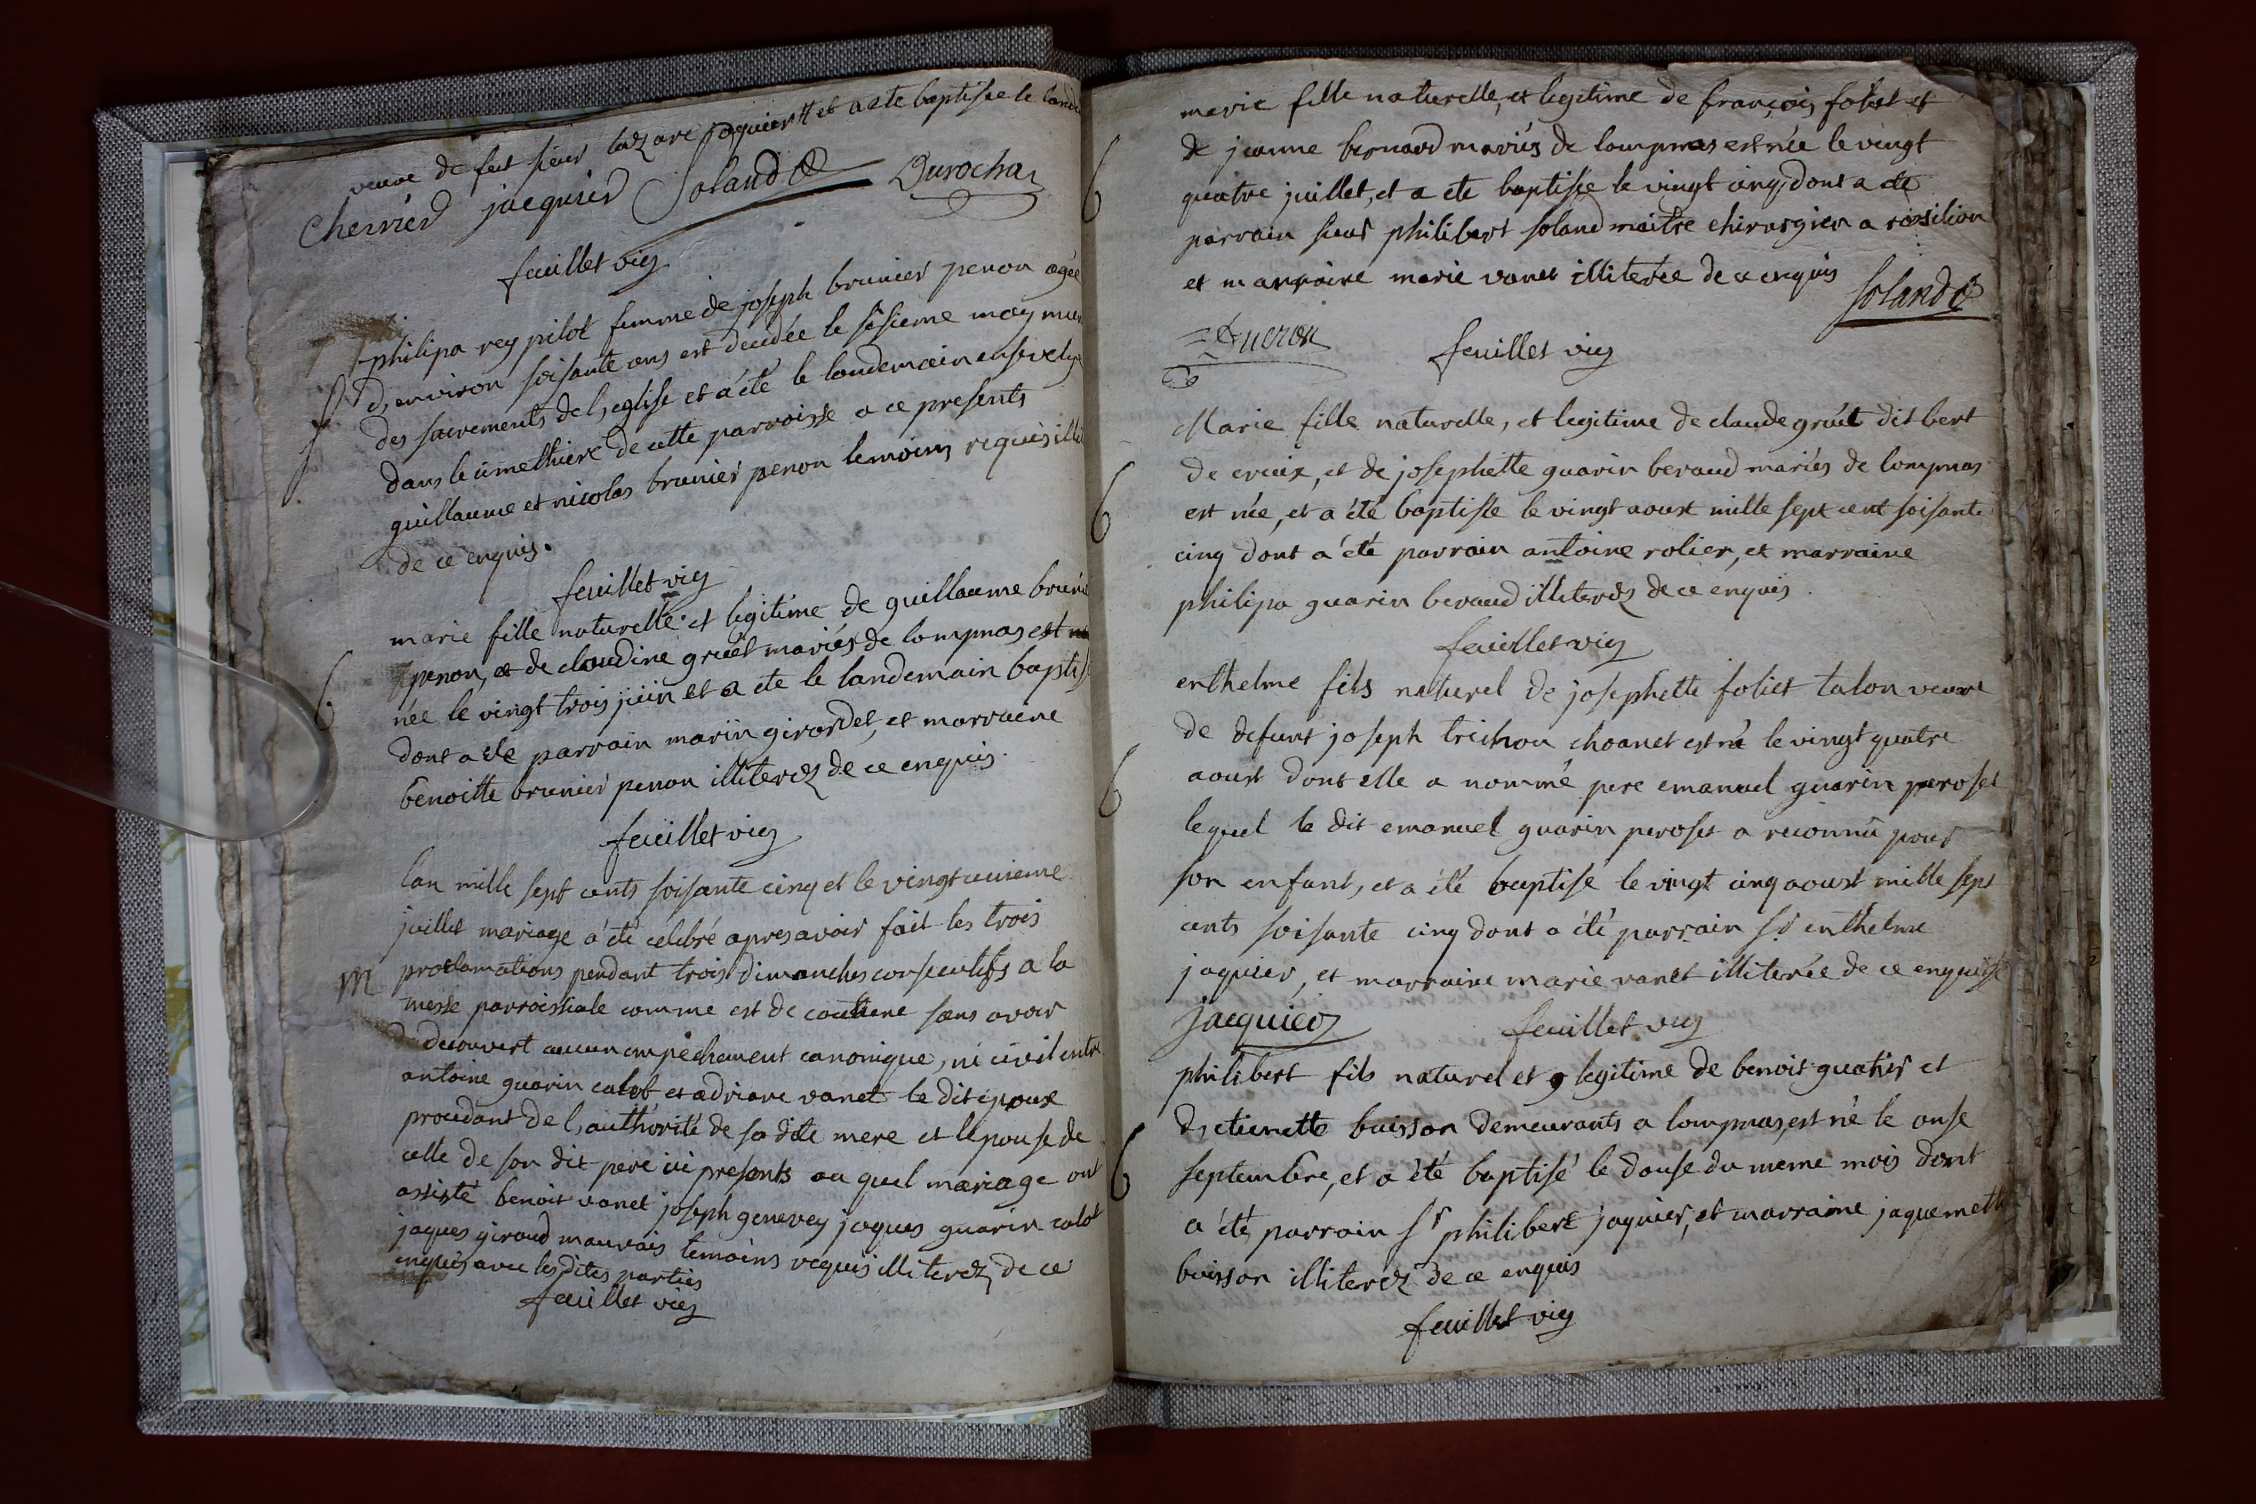 veuve de feu sieur lazare jaquier et a ete baptisée le lande
cherrier jacquier Soland Durocha
feuillet vic
philipa rey pilot femme de joseph brunier penon agée
S d,environ soisante ans est decedée le sesieme may mun
des sacrements de l,eglise et a été le landemain ensevelye
dans le cimethiere de cette parroisse a ce presents
guillaume et nicolas brunier penon temoins requis illi
de ce enquis.
feuillet vic
marie fille naturelle et legitime de guillaume brunie
penon, et de claudine gruet mariés de lompnas est
6 née le vingt trois juin et a ete le landemain baptis
dont a ete parrain marin girardet, et marraine
benoitte brunier penon illiterez de ce enquis.
feuillet vic
lan mille sept cents soisante cinq et le vingt
juillet mariage a été celebré apres avoir fait les trois
M proclamations pendant trois dimanches consecutifs a la
messe parroissiale comme est de coutume sans avoir
decouvert aucun empechement canonique, ni civil entre
antoine guarin calot et adriane vanet le dit epoux
procedant de l,authorité de sa dite mere et lepouse de
celle de son dit pere ici presents au quel mariage ont
assisté benoit vanet joseph genevey jaques guarin calot
jaques giraud mauvais temoins requis illiterez de ce
enquis avec les dites parties
feuillet vic
marie fille naturelle, et legitime de françois foliet et
6 de jeanne bernaud mariés de lompnas est née le vingt
quatre juillet, et a ete baptisée le vingt cinq, dont a ete
parrain sieur philibert soland maitre chirurgien a rossilion
et marraine marie vanet illiterée de ce enquis
Soland
Ducron feuillet vic
Marie fille naturelle, et legitime de claude gruet dit bert
de creux, et de josephette guarin beraud mariés de lompnas
6 est née, et a été baptisée le vingt aoust mille sept cent soisante
cinq dont a été parrain antoine rolier, et marraine
philipa guarin beraud illiterez de ce enquis.
feuillet vic
enthelme fils naturel de josephette foliet talon veuve
de defunt joseph trichon choanet est né le vingt quatre
6 aoust dont elle a nommé pere emanuel guarin peroset
lequel le dit emanuel guarin peroset a reconnu pour
son enfant, et a été baptisé le vingt cinq aoust mille sept
cents soisante cinq dont a été parrain sr enthelme
jaquier, et marraine marie vanet illiterée de ce enquise
jacquier feuillet vic
philibert fils naturel et legitime de benoit guatier et
d,etienette buisson demeurants a lompnas, est né le onse
6 septembre, et a été baptisé le douse du meme mois dont
a été parrain sr philibert jaquier, et marraine jaquemette
buisson illiterez de ce enquis
feuillet vic